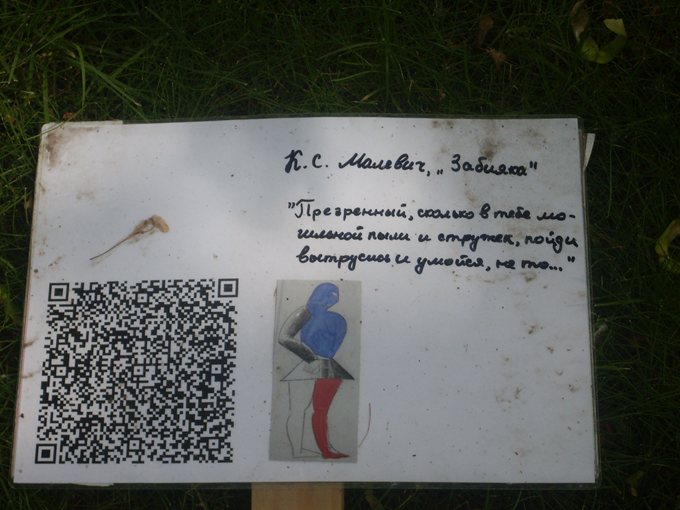 К. С. Малевич, „Забияка"
"Презренный, сколько в тебе мо-
гильной пыли и стружек, пойди
вытрусись и умойся, не то..."